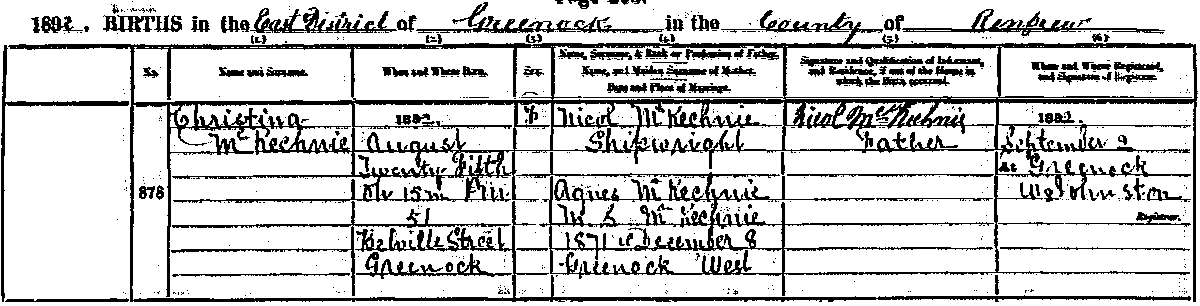 1892. BIRTHS in the East District of Greenock in the County of Renfrew
(1) (2) (3) (4) (5) (6)
No. Name and Surname. When and Where Born. Sex. Name, Surname, & Rank or Profession of Father. Name, and Maiden Surname of Mother. Date and Place of Marriage. Signature and Qualification of Informant, and Residence, if out of the House in which the Birth occurred. When and Where Registered, and Signature of Registrar.
878
Christina
McKechnie
1892.
August
Twenty Fifth
0h 15m P.M.
51
Belville Street
Greenock
F
Nicol McKechnie
Shipwright
Agnes McKechnie
M S McKechnie
1871 December 8
Greenock West
Nicol McKechnie
Father
1892.
September 9
At Greenock
Johnston
Registrar.